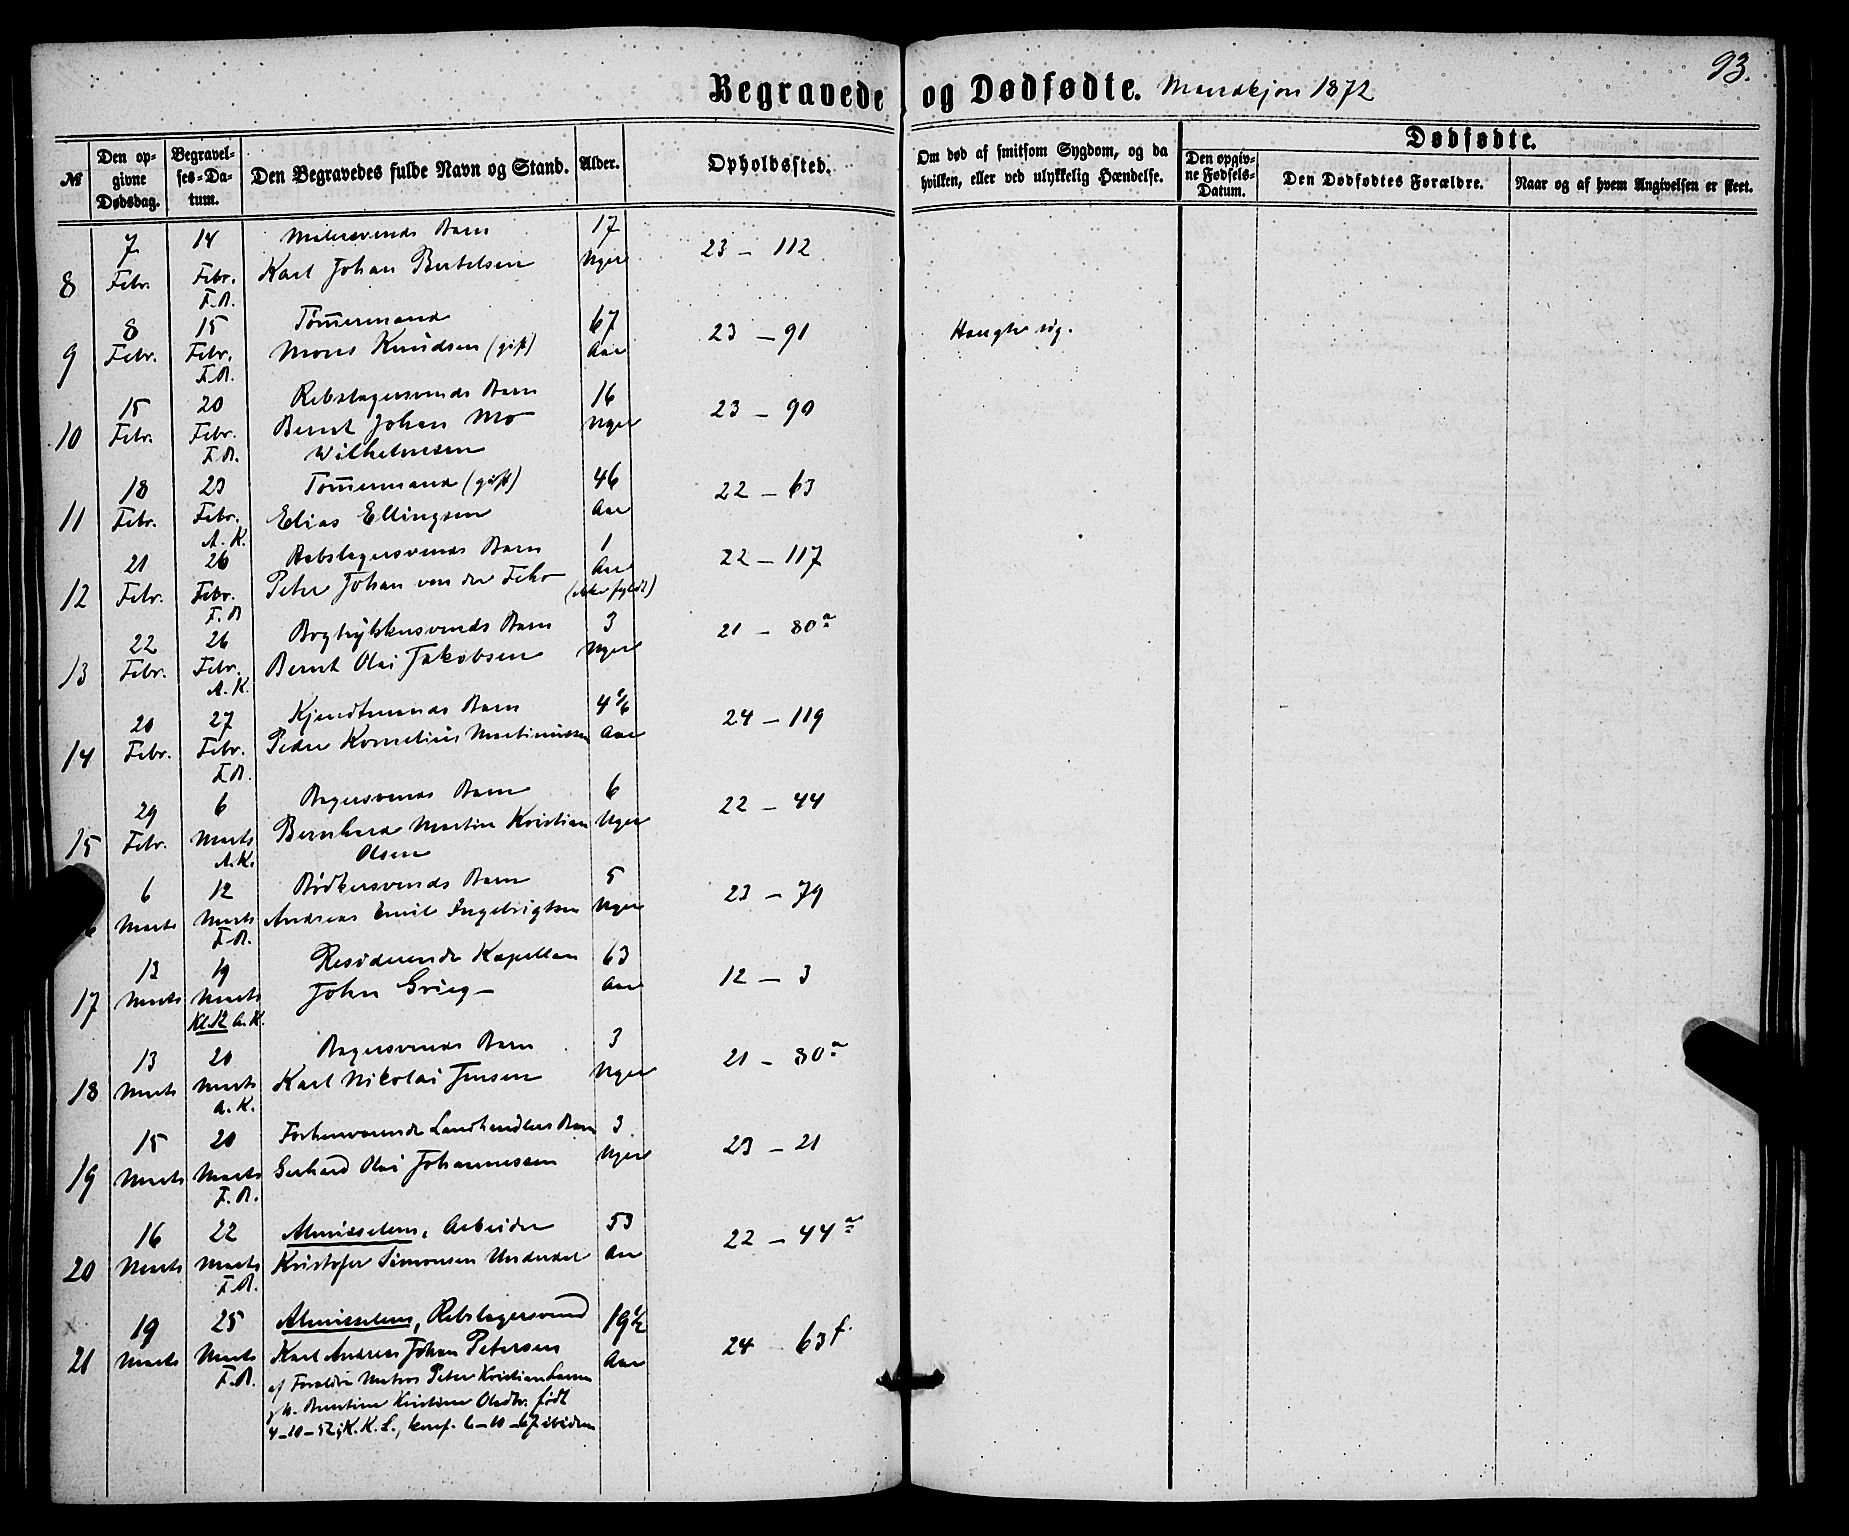 93.
Begravede og Dødfødte. Mandkjøn 1872
№
Den opgivne Dødsdag.
Begravelses-Datum.
Den Begravedes fulde Navn og Stand.
Alder.
Opholdssted.
Om død af smitsom Sygdom, og da hvilken, eller ved ulykkelig Hændelse.
Dødfødte.
Den opgivne Fødsels-Datum.
Den Dødfødtes Forældre.
Naar og af hvem Angivelsen er skeet.
7 14 Malersvends Barn 17
8 Febr. Febr. Karl Johan Bertelsen Uger 23 - 112
F.A.
8 15 Tømmermand 67
9 Febr. Febr. Mons Knudsen (gift) Aar 23 - 91 Hængte sig.
F.A.
15 20 Rebslagersvends Barn 16
10 Febr. Febr. Bernt Johan Mo Uger 23 - 90
F.A. Wilhelmsen
18 23 Tømmermand (gift) 46
11 Febr. Febr. Elias Ellingsen Aar 22 - 63
A.K.
21 26 Rebslagersvends Barn 1
12 Febr. Febr. Peter Johan von der Fehr Aar (ikke fyldt) 22 - 117
F.A
22 26 Bogtrykkersvends Barn 3
13 Febr. Febr. Bernt Olai Jakobsen Uger 21 - 80a
A.K.
20 27 Kjøndtmands Barn 4 1/6
14 Febr. Febr. Peder Kornelius Martinussen Aar 24 - 119
F.A.
29 6 Bagersvends Barn 6
15 Febr. Marts Bernhard Martin Kristian Uger 22 - 44
A.K. Olsen
6 12 Bødkersvends Barn 5
6 Marts Marts Andreas Emil Ingebrigtsen Uger 23 - 79
F.A.
13 19 Residerende Kapellan 63
17 Marts Marts John Grieg Aar 12 - 3
Kl.R A.K.
13 20 Bagersvends Barn 3
18 Marts Marts Karl Nikolai Jensen Uger 21 - 80a
A.K.
15 20 Forhenværende Landhandlers Barn 3
19 Marts Marts Gerhard Olai Johannessen Uger 23 - 21
F.A.
16 22 Almisselem, Arbeider 53
20 Marts Marts Kristofer Simonsen Underdal Aar 22 - 44a
F.A.
19 25 Almisselem, Rebslagersvend 19 1/2
21 Marts Marts Karl Andreas Johan Petersen Aar 24 63f.
F.A. af Forældre Matros Peter Kristian
Kristine Olsdtr. født
4-10-52 i K.K.S., konf. 6-10-67 ibidem